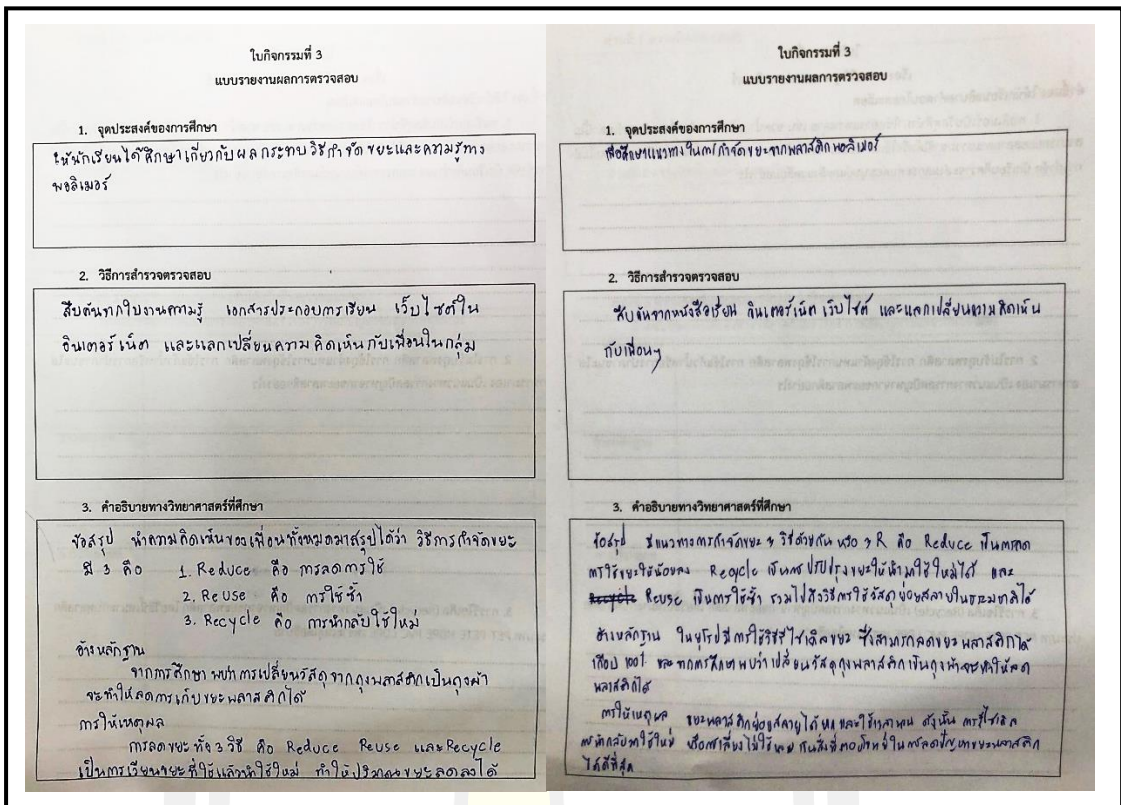 ใบกิจกรรมที่ 3
แบบรายงานผลการตรวจสอบ
1. จุดประสงค์ของการศึกษา
ให้นักเรียนได้ศึกษาเกี่ยวกับผลกระทบวิธีกำจัดขยะและความรู้ทาง
พอลิเมอร์
2. วิธีการสำรวจตรวจสอบ
สืบค้นจากใบงานความรู้ เอกสารประกอบการเรียน เว็บไซต์ใน
อินเตอร์เน็ต และแลกเปลี่ยนความคิดเห็นกับเพื่อนในกลุ่ม
3. คำอธิบายทางวิทยาศาสตร์ที่ศึกษา
ข้อสรุป นำความคิดเห็นของเพื่อนทั้งหมดมาสรุปได้ว่า วิธีการกำจัดขยะ
มี 3 คือ 1. Reduce คือ การลดการใช้
2. Reuse คือ การใช้ซ้ำ
3. Recycle คือ การนำกลับใช้ใหม่
อ้างหลักฐาน
จากการศึกษา พบว่าการเปลี่ยนวัสดุจากถุงพลาสติกเป็นถุงผ้า
จะทำให้ลดการเก็บขยะพลาสติกได้
การให้เหตุผล
การลดขยะทั้ง 3 วิธี คือ Reduce Reuse และ Recycle
เป็นการเวียนขยะที่ใช้แล้วนำใช้ใหม่ ทำให้ปริมาณขยะลดลงได้
ใบกิจกรรมที่ 3
แบบรายงานผลการตรวจสอบ
1. จุดประสงค์ของการศึกษา
เพื่อศึกษาแนวทางในการกำจัดขยะจากพลาสติกพอลิเมอร์
2. วิธีการสำรวจตรวจสอบ
สืบค้นจากหนังสือเรียน อินเตอร์เน็ต เว็บไซต์ และแลกเปลี่ยนความคิดเห็น
กับเพื่อนๆ
3. คำอธิบายทางวิทยาศาสตร์ที่ศึกษา
ข้อสรุป มีแนวทางการกำจัดขยะ 3 วิธีด้วยกัน หรือ 3 R คือ Reduce เป็นการลด
การใช้ขยะใช้น้อยลง Recycle เป็นการปรับปรุงขยะให้นำมาใช้ใหม่ได้ และ
Reuse เป็นการใช้ซ้ำ รวมไปถึงวิธีการใช้วัสดุย่อยสลายในธรรมชาติได้
อ้างหลักฐาน ในยุโรปมีการใช้วิธีรีไซเคิลขยะ ซึ่งสามารถลดขยะพลาสติกได้
เกือบ 100% และจากการศึกษาพบว่าเปลี่ยนวัสดุถุงพลาสติกเป็นถุงผ้าจะทำให้ลด
พลาสติกได้
การให้เหตุผล ขยะพลาสติกย่อยสลายได้ยากและใช้เวลานาน ดังนั้น การรีไซเคิล
การนำกลับมาใช้ใหม่ หรือการเลี่ยงไม่ใช้ เป็นสิ่งที่ตอบโจทย์ในการลดปัญหาขยะพลาสติก
ได้ดีที่สุด